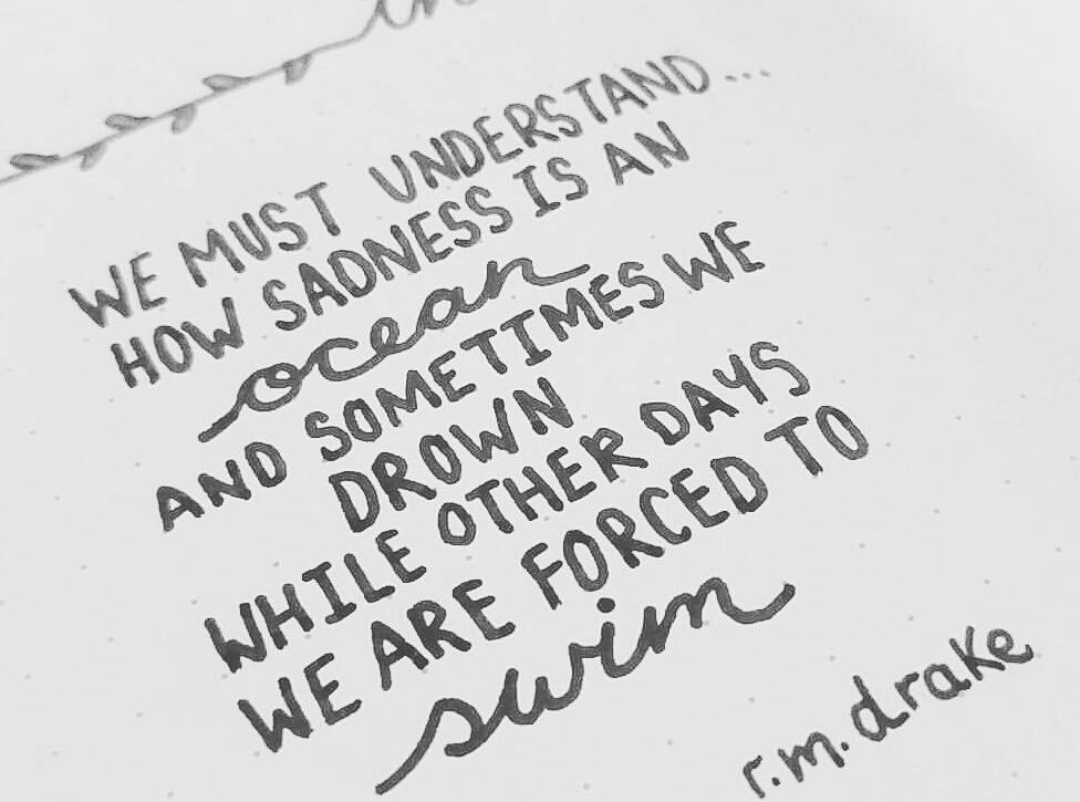 WE MUST UNDERSTAND...
HOW SADNESS IS AN
ocean
AND SOMETIMES WE
DROWN
WHILE OTHER DAYS
WE ARE FORCED TO
swim
r.m.drake